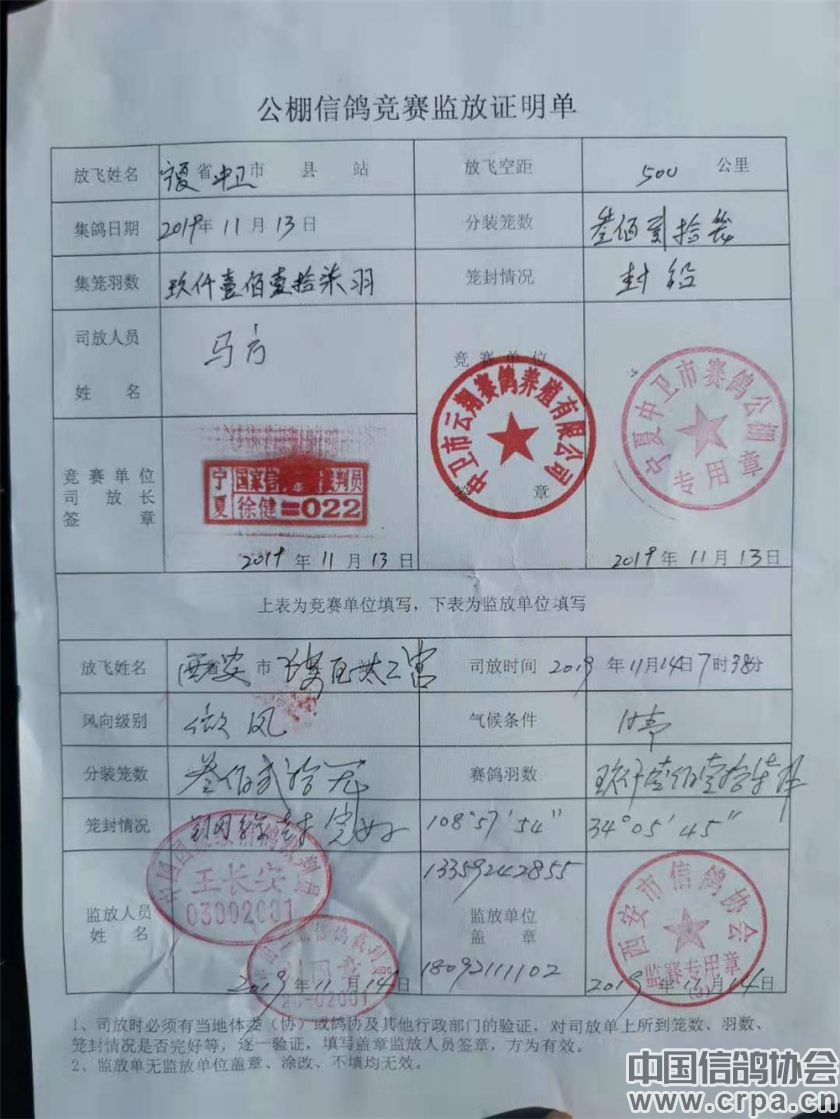 公棚信鸽竞赛监放证明单
放飞姓名 宁夏省中卫市 县 站 放飞空距 500 公里
集鸽日期 2019年11月13日 分装笼数 叁佰贰拾笼
集笼羽数 玖仟壹佰壹拾柒羽 笼封情况 封铅
司放人员
姓 名
马方
竞赛单位
签 章
中卫市云翔赛鸽养殖有限公司
宁夏中卫市赛鸽公棚
专用章
竞赛单位
司 放 长
签 章
宁夏
徐健 022
2019年11月13日
2019年11月13日
上表为竞赛单位填写，下表为监放单位填写
放飞姓名 西省安市 司放时间 2019年11月14日7时38分
风向级别 微风 气候条件 晴
分装笼数 叁佰贰拾笼 赛鸽羽数 玖仟壹佰壹拾柒羽
笼封情况 完好 108°57′54″ 34°05′45″
监放人员
姓 名
王长安
03002001
13359242855
监放单位
盖 章
18092111102
西安市信鸽协会
监赛专用章
2019年11月14日
2019年11月14
1、司放时必须有当地体委（协）或鸽协及其他行政部门的验证，对司放单上所到笼数、羽数、
笼封情况是否完好等，逐一验证，填写盖章监放人员签章，方为有效。
2、监放单无监放单位盖章、涂改、不填均无效。
中国信鸽协会
www.crpa.cn